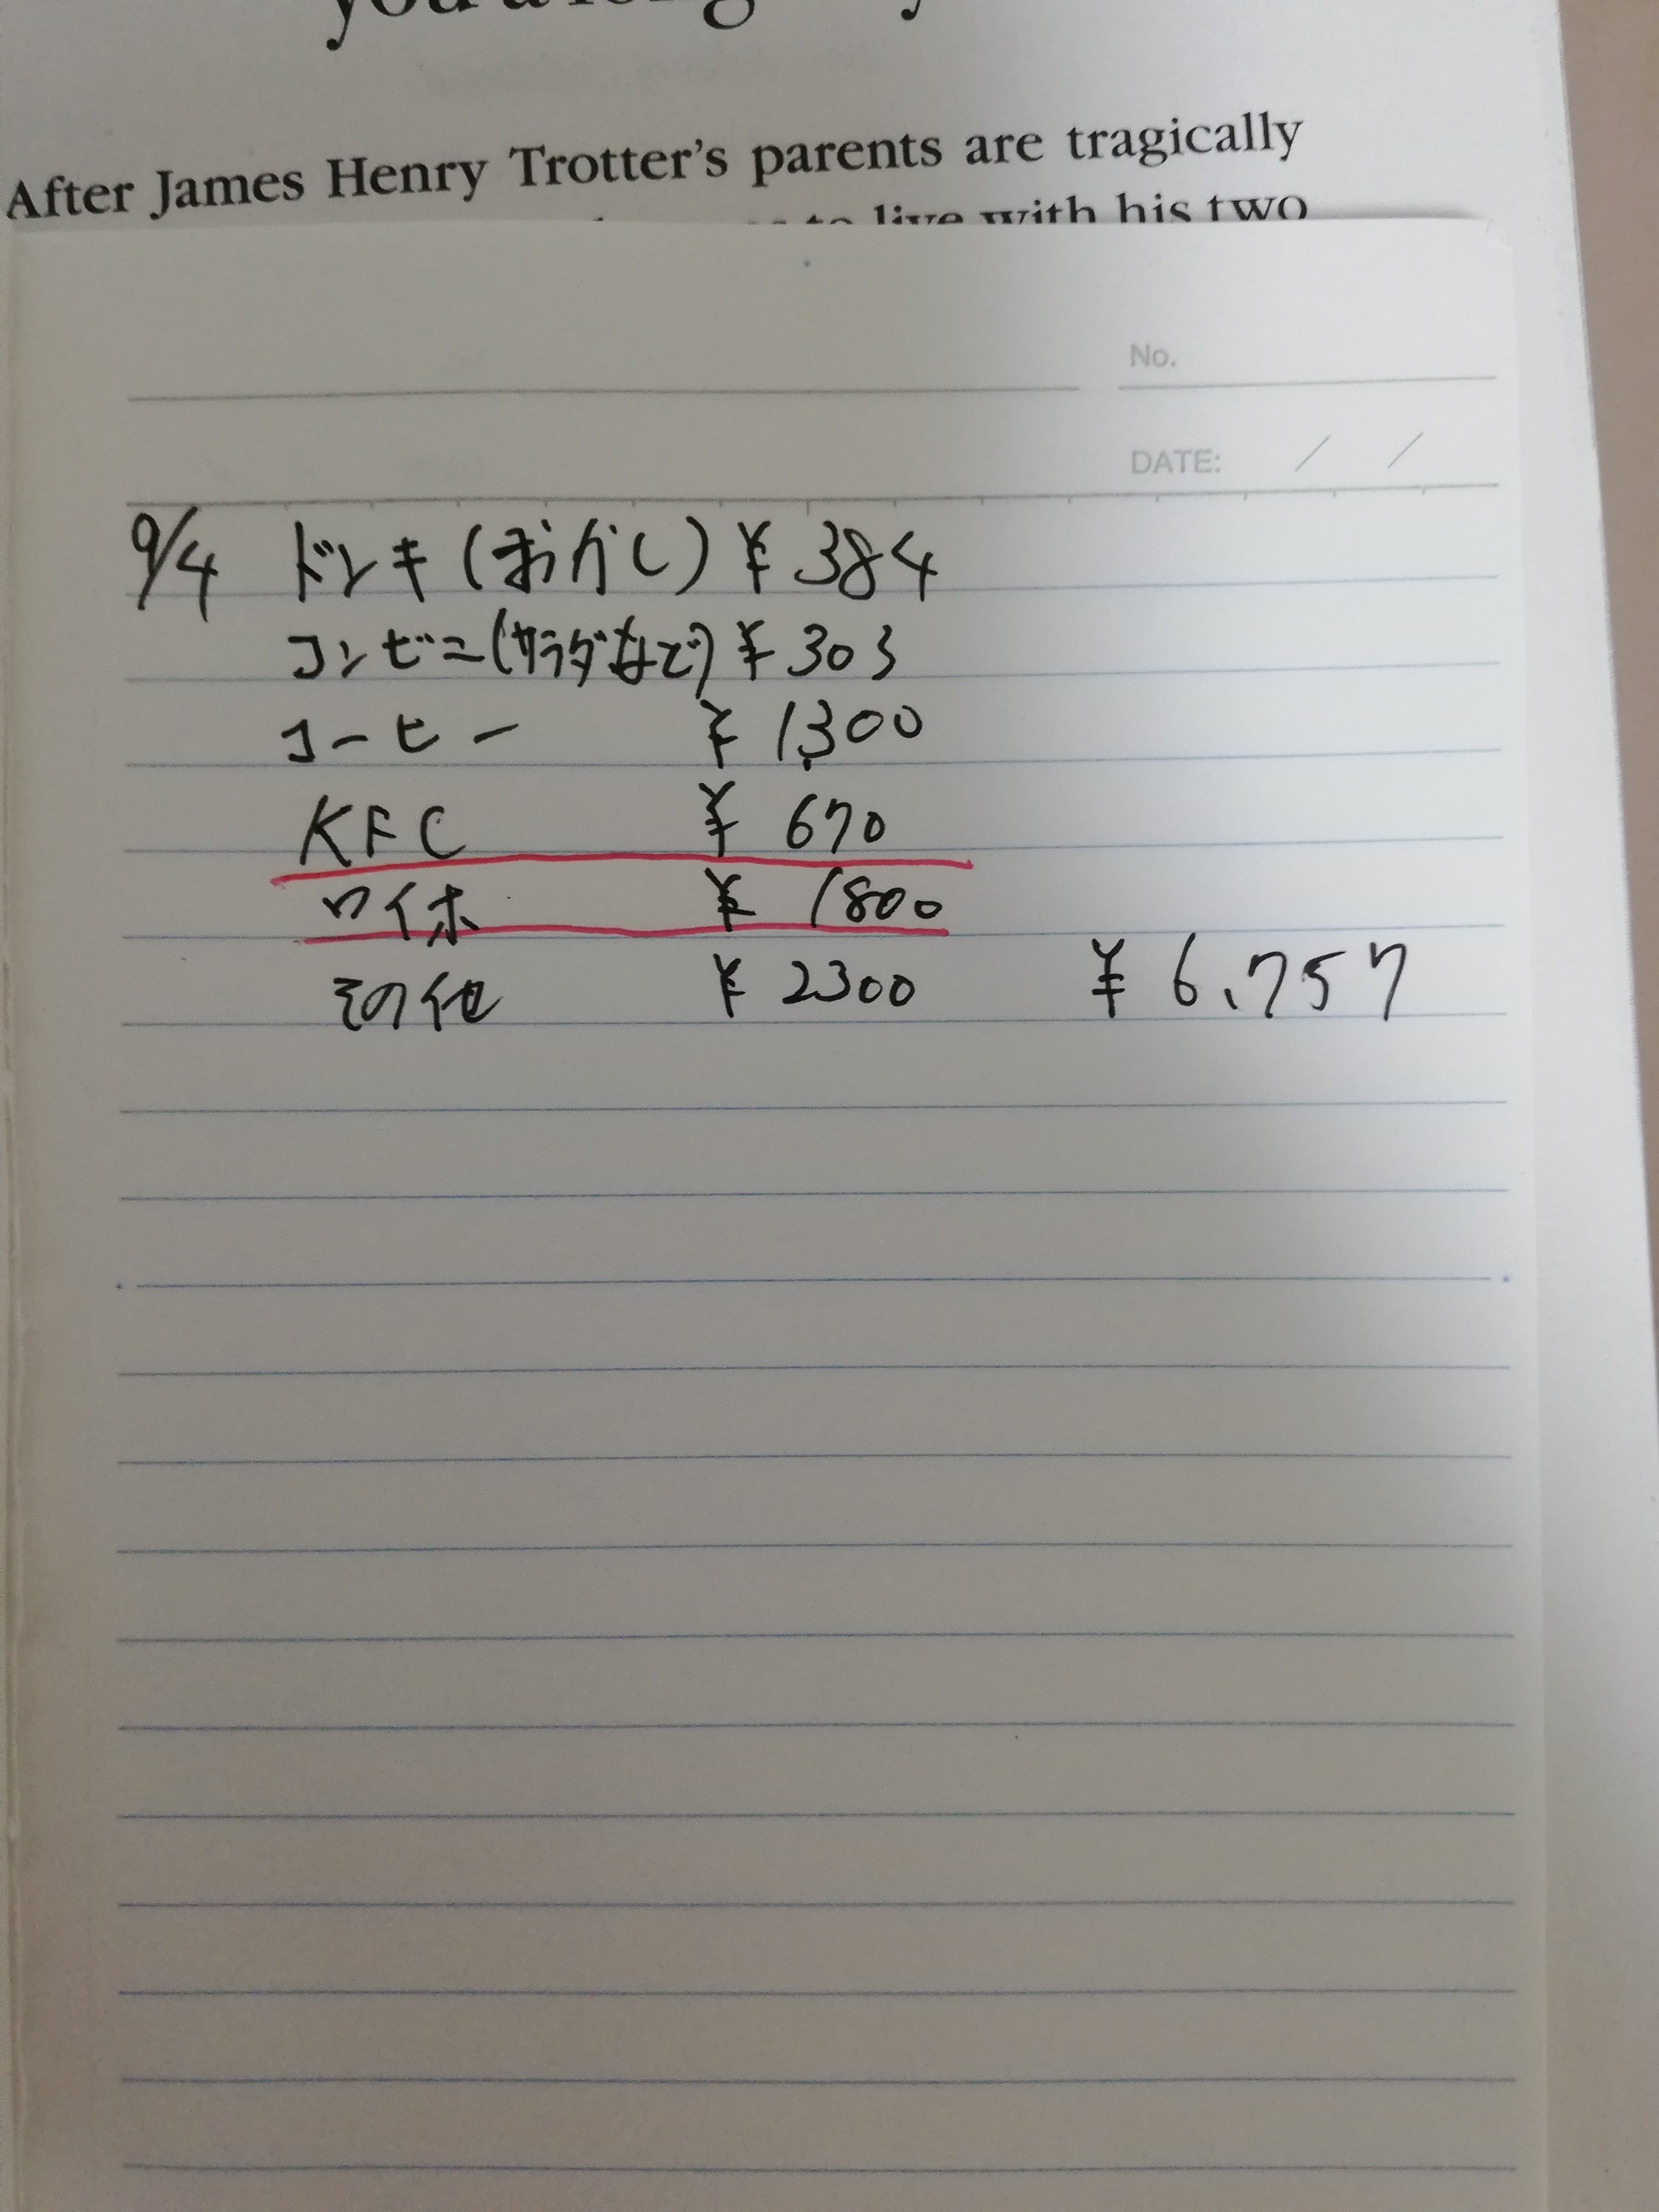 After James Henry Trotter's parents are tragically
to live with his two
No.
DATE: / /
9/4 ドンキ(おかし) ¥384
コンビニ(サラダなど) ¥303
コーヒー ¥1,300
KFC ¥670
ロイホ ¥1800
その他 ¥2300 ¥6,757